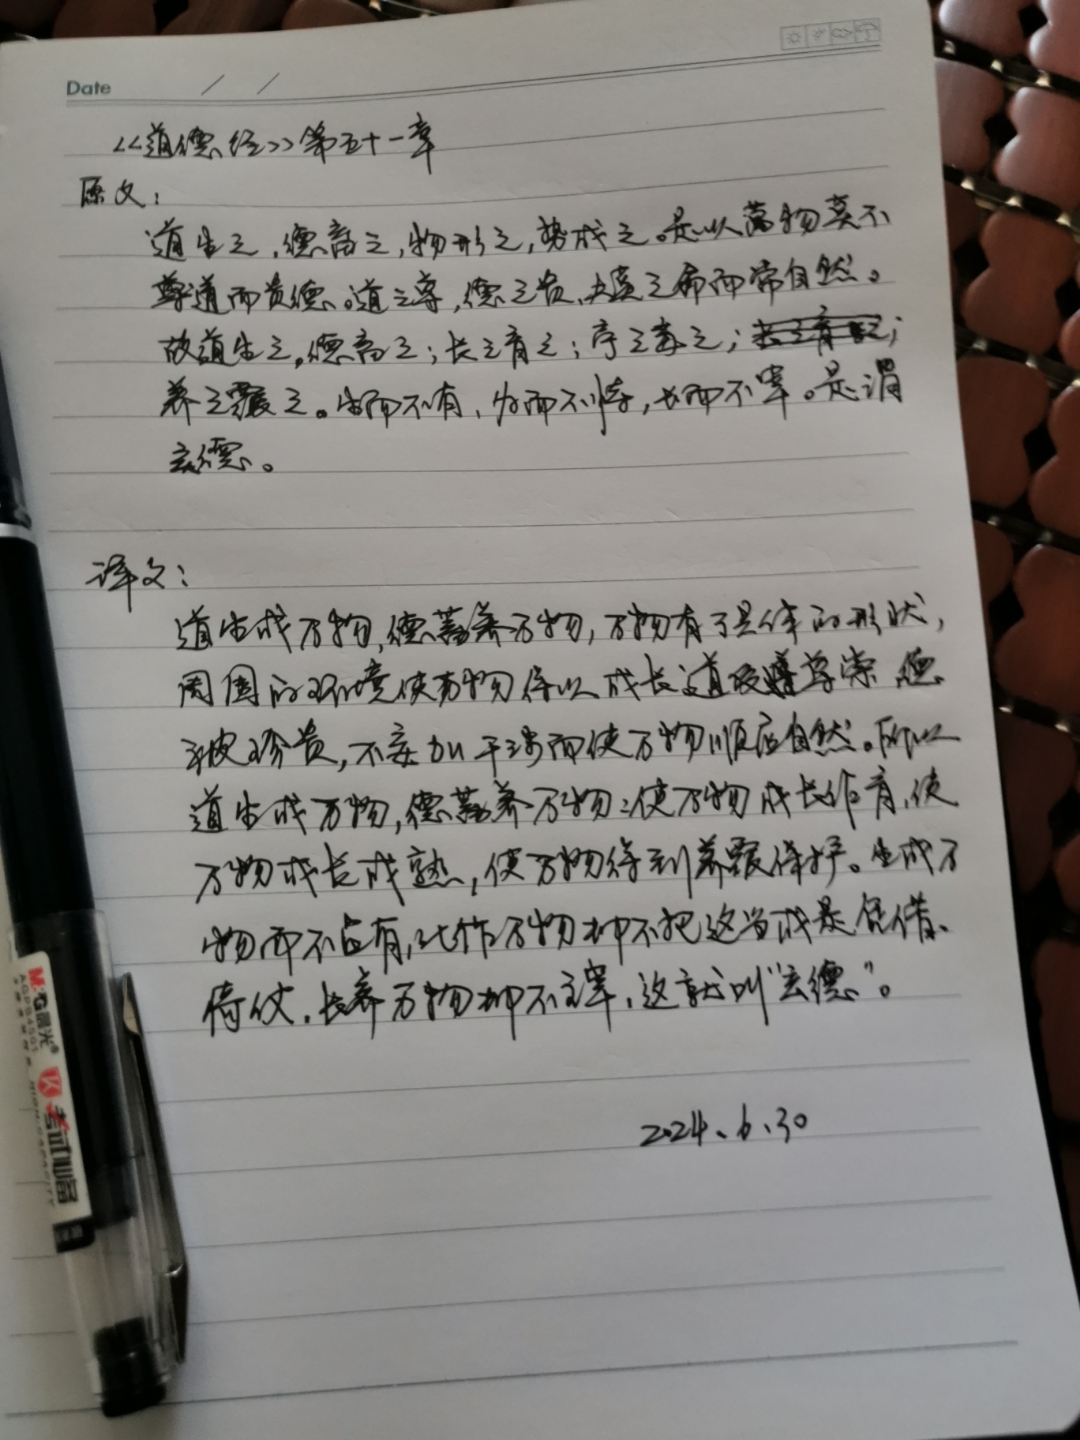 Date / /
<<道德经>>第五十一章
原文:
道生之,德畜之,物形之,势成之。是以万物莫不
尊道而贵德。道之尊,德之贵,夫莫之命而常自然。
故道生之,德畜之;长之育之;亭之毒之;
养之覆之。生而不有,为而不恃,长而不宰。是谓
玄德。
译文:
道生成万物,德蓄养万物,万物有了具体的形状,
周围的环境使万物得以成长道及尊崇德
被珍贵,不妄加干涉而使万物顺应自然。所以
道生成万物,德蓄养万物;使万物成长作育,使
万物成长成熟,使万物得到养覆保护。生成万
物而不占有,化作万物却不把这当成是凭借、
倚仗,长养万物却不主宰,这就叫“玄德”。
2024、6、30
M&G晨光®
AGP04501
考试必备